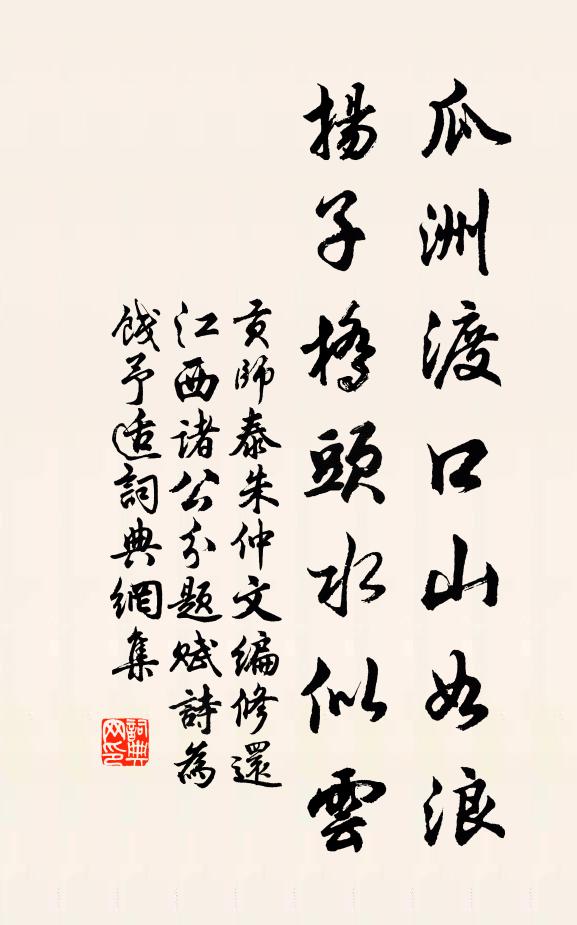 瓜洲渡口山如浪
揚子橋頭水似雲
貢師泰朱仲文編修還
江西諸公分題賦詩為
餞予适詞典網集
詞典
网印